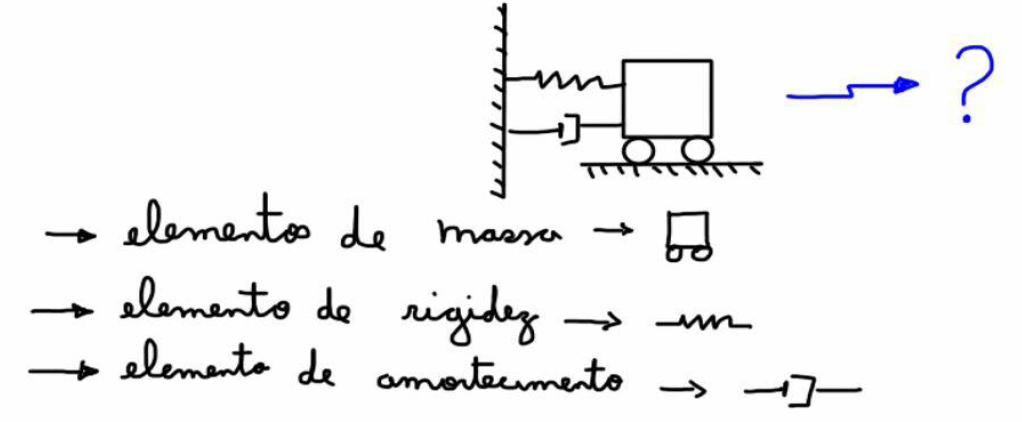 ?
→ elementos de massa →
→ elemento de rigidez →
→ elemento de amortecimento →